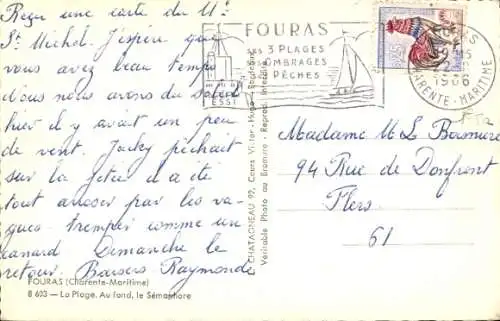 Reçu une carte du Mt
St Michel. J'espère que
vous avez beau temps
Nous nous avons du soleil
hier il y avait un peu
de vent. Jacky pêchait
sur la jetée il a été
tout arroser par les va-
gues tremper comme un
canard Dimanche le
retour. Baisers Raymonde
FOURAS (Charente-Maritime)
B 603 — La Plage. Au fond, le Sémaphore
CHATAGNEAU 97, Cours Victor-Hugo - Bordeaux
Véritable Photo au Bromure - Reprod. Interdite
FOURAS
SES 3 PLAGES
SES OMBRAGES
PÊCHES
CHARENTE-MARITIME
Madame M L
94 Rue de Domfront
Flers
61